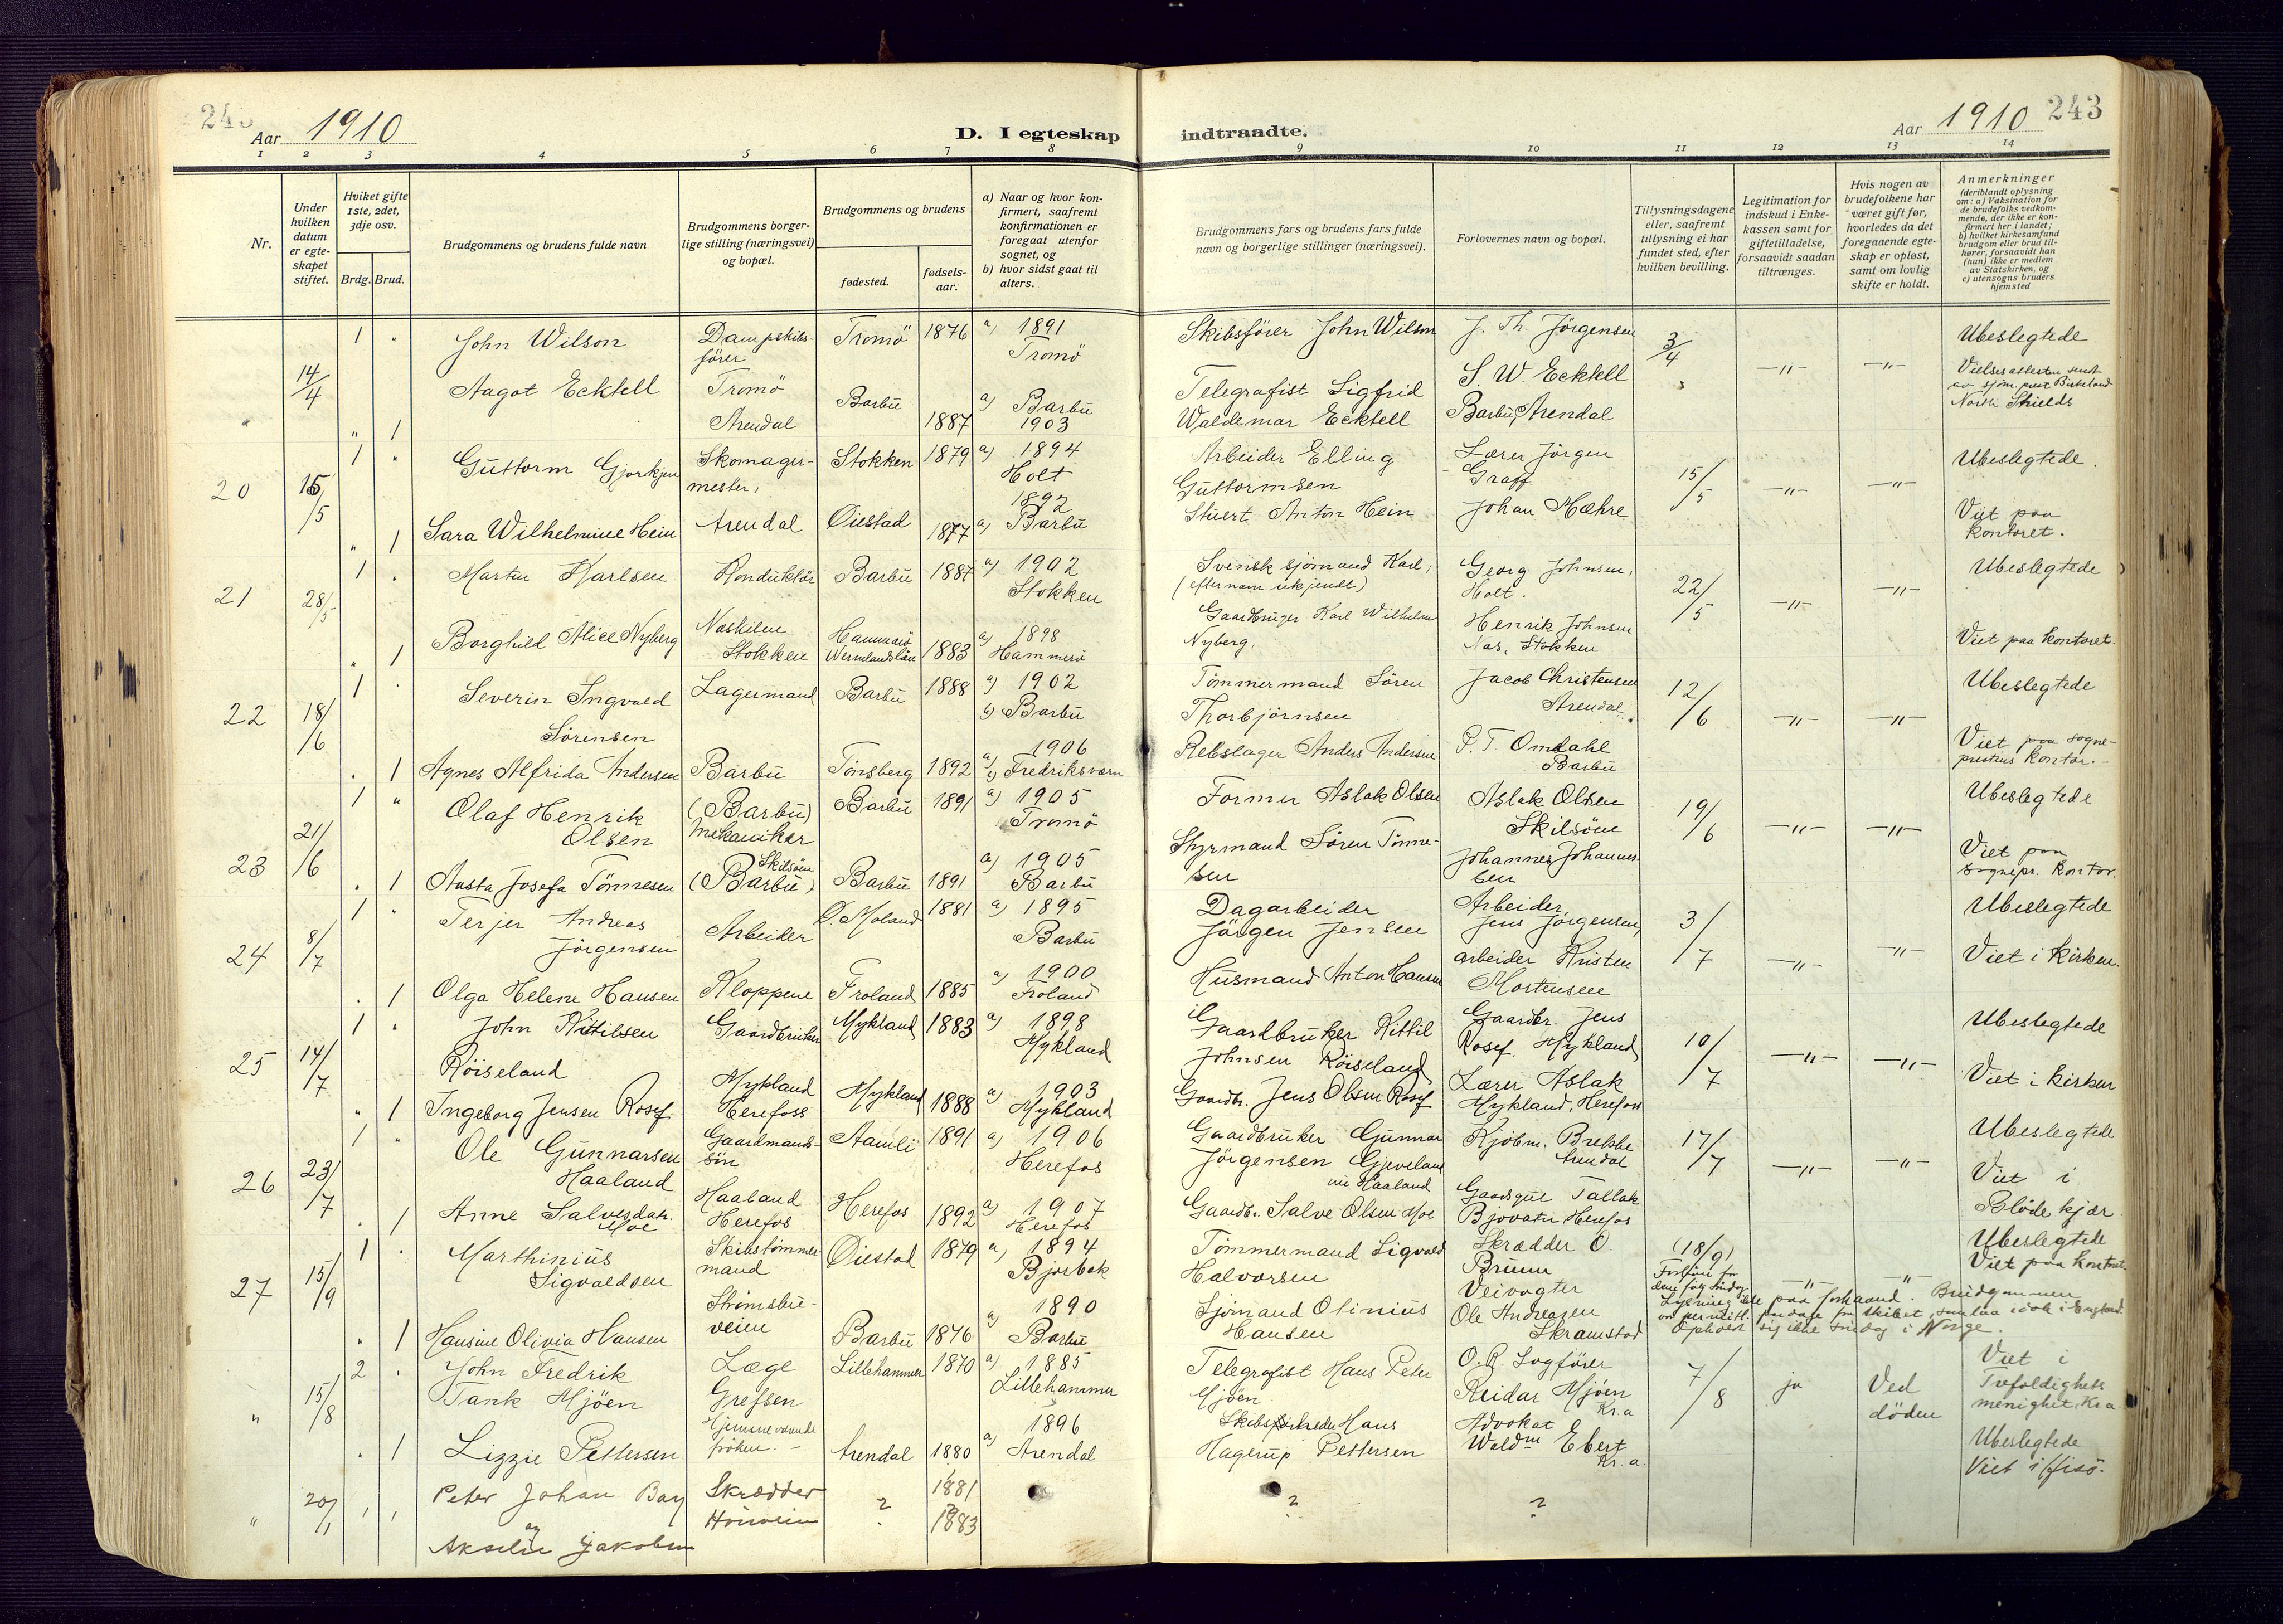 243
Aar 1910
D. I egteskap
indtraadte.
Aar 1910
243
1 2 3 4 5 6 7 8 9 10 11 12 13 14
Nr.
Under hvilken datum er egteskapet stiftet.
Hviket gifte 1ste, 2det, 3dje osv.
Brdg. Brud.
Brudgommens og brudens fulde navn
Brudgommens borgerlige stilling (næringsvei) og bopæl.
Brudgommens og brudens
fødested.
fødselsaar.
a) Naar og hvor konfirmert, saafremt konfirmationen er foregaat utenfor sognet, og
b) hvor sidst gaat til alters.
Brudgommens fars og brudens fars fulde navn og borgerlige stillinger (næringsvei).
Forlovernes navn og bopæl.
Tillysningsdagene eller, saafremt tillysning ei har fundet sted, efter hvilken bevilling.
Legitimation for indskud i Enkekassen samt for giftetilladelse, forsaavidt saadan tiltrænges.
Hvis nogen av brudefolkene har været gift før, hvorledes da det foregaaende egteskap er opløst, samt om lovlig skifte er holdt.
Anmerkninger
(deriblandt oplysning om: a) Vaksination for de brudefolks vedkommende, der ikke er konfirmert her i landet; b) hvilket kirkesamfund brudgom eller brud tilhører, forsaavidt han (hun) ikke er medlem av Statskirken, og c) utensogns bruders hjemsted
" 14/4 1 " John Wilson Dampskibsfører Tromö 1876 a) 1891 Tromö Skibsfører John Wilson J. Th. Jörgensen 3/4 —"— —"— Ubeslegtede
" 1 Aagot Ecktell Tromö Arendal Barbu 1887 a) Barbu 1903 Telegrafist Sigfrid Waldemar Ecktell S. W. Ecktell Barbu, Arendal Vielsesattesten sendt av sjøm. prest North Shields
20 15/5 1 " Guttorm Gjerkjen Skomagermester, Stokken 1879 a) 1894 Holt Arbeider Elling Guttormsen Lærer Jörgen Graff 15/5 —"— —"— Ubeslegtede.
" 1 Sara Wilhelmine Hein Arendal Öiestad 1877 a) 1892 Barbu Stuert Anton Hein Johan Mæhre Viet paa kontoret.
21 28/5 1 " Martin Karlsen Konduktör Barbu 1887 a) 1902 Stokken Svensk sjömand Karl, (efternavn ukjendt) Georg Johnsen, Holt. 22/5 —"— —"— Ubeslegtede
" 1 Borghild Alice Nyberg Naskilen Stokken Hammarö Wermlandslän 1883 a) 1898 Hammerö Gaardbruger Karl Wilhelm Nyberg, Henrik Johnsen Nas, Stokken Viet paa kontoret.
22 18/6 1 " Severin Ingvald Sörensen Lagermand Barbu 1888 a) 1902 b) Barbu Tömmermand Sören Thorbjörnsen Jacob Christensen Arendal. 12/6 —"— —"— Ubeslegtede
" 1 Agnes Alfrida Andersen Barbu Tönsberg 1892 a) 1906 b) Fredriksværn Rebslager Anders Andersen P. T Omdahl Barbu Viet paa sogneprestens kontor.
23 21/6 1 " Olaf Henrik Olsen (Barbu) Mekaniker Barbu 1891 a) 1905 Tromö Former Aslak Olsen Aslak Olsen Skilsöen 19/6 —"— —"— Ubeslegtede
" 1 Aasta Josefa Tönnesen Skilsöen (Barbu) Barbu 1891 a) 1905 Barbu Styrmand Sören Tönnesen Johannes Johannessen Viet paa sognepr. kontor.
24 8/7 1 " Terjer Andreas Jörgensen Arbeider Ö. Moland 1881 a) 1895 Barbu Dagarbeider Jörgen Jensen Arbeider Jens Jörgensen, 3/7 —"— —"— Ubeslegtede
" 1 Olga Helene Hansen Kloppene Froland 1885 a) 1900 Froland Husmand Anton Hansen arbeider Kristen Mortensen Viet i kirken.
25 14/7 1 " John Kittilsen Röiseland Gaardbruker Mykland 1883 a) 1898 Mykland Gaardbruker Kittil Johnsen Röiseland Gaardbr. Jens Rosef. Mykland 10/7 —"— —"— Ubeslegtede
" 1 Ingeborg Jensen Rosef. Mykland Herefoss Mykland 1888 a) 1903 Mykland Gaardbr. Jens Olsen Rosef Lærer Aslak Mykland, Herefoss Viet i kirken
26 23/7 1 " Ole Gunnarsen Haaland Gaardmandssön Aamli 1891 a) 1906 Herefos Gaardbruker Gunnar Jörgensen Gjeveland nu Haaland Kjöbm. Brekke Arendal 17/7 —"— —"— Ubeslegtede
" 1 Anne Salvesdatr. Moe Haaland Herefos Herefos 1892 a) 1907 Herefos Gaardbr. Salve Olsen Moe Gaardsgut Tallak Bjovatn Herefos Viet i Blödekjær
27 15/9 1 " Marthinius Sigvaldsen Skibstömmermand Öiestad 1879 a) 1894 Bjorbæk Tömmermand Sigvald Halvorsen Skrædder O. Bruun (18/9) —"— —"— Ubeslegtede Viet paa kontoret
" 1 Hansine Olivia Hansen Strömsbuveien Barbu 1876 a) 1890 Barbu Sjömand Olinius Hansen Veivogter Ole Andreasen Skramstad Lysning ikke paa forhaand. Brudgommen opholdt sig ikke i Norge.
" 15/8 2 " John Fredrik Tank Mjöen Læge Grefsen Lillehammer 1870 a) 1885 Lillehammer Telegrafist Hans Peter Mjöen O.R. Sagförer Reidar Mjöen Kr.a 7/8 ja Ved döden Viet i Trefoldighets menighet, Kr.a
" 1 Lizzie Pettersen Hjemmeværende fröken. Arendal 1880 a) 1896 Arendal Hans Hagerup Pettersen Advokat Waldm Ebert Kr.a. Ubeslegtede
" 20/1 ' ' Peter Johan Bay og Akselie Jakobsen Skrædder ? 1881 1883 ? ?